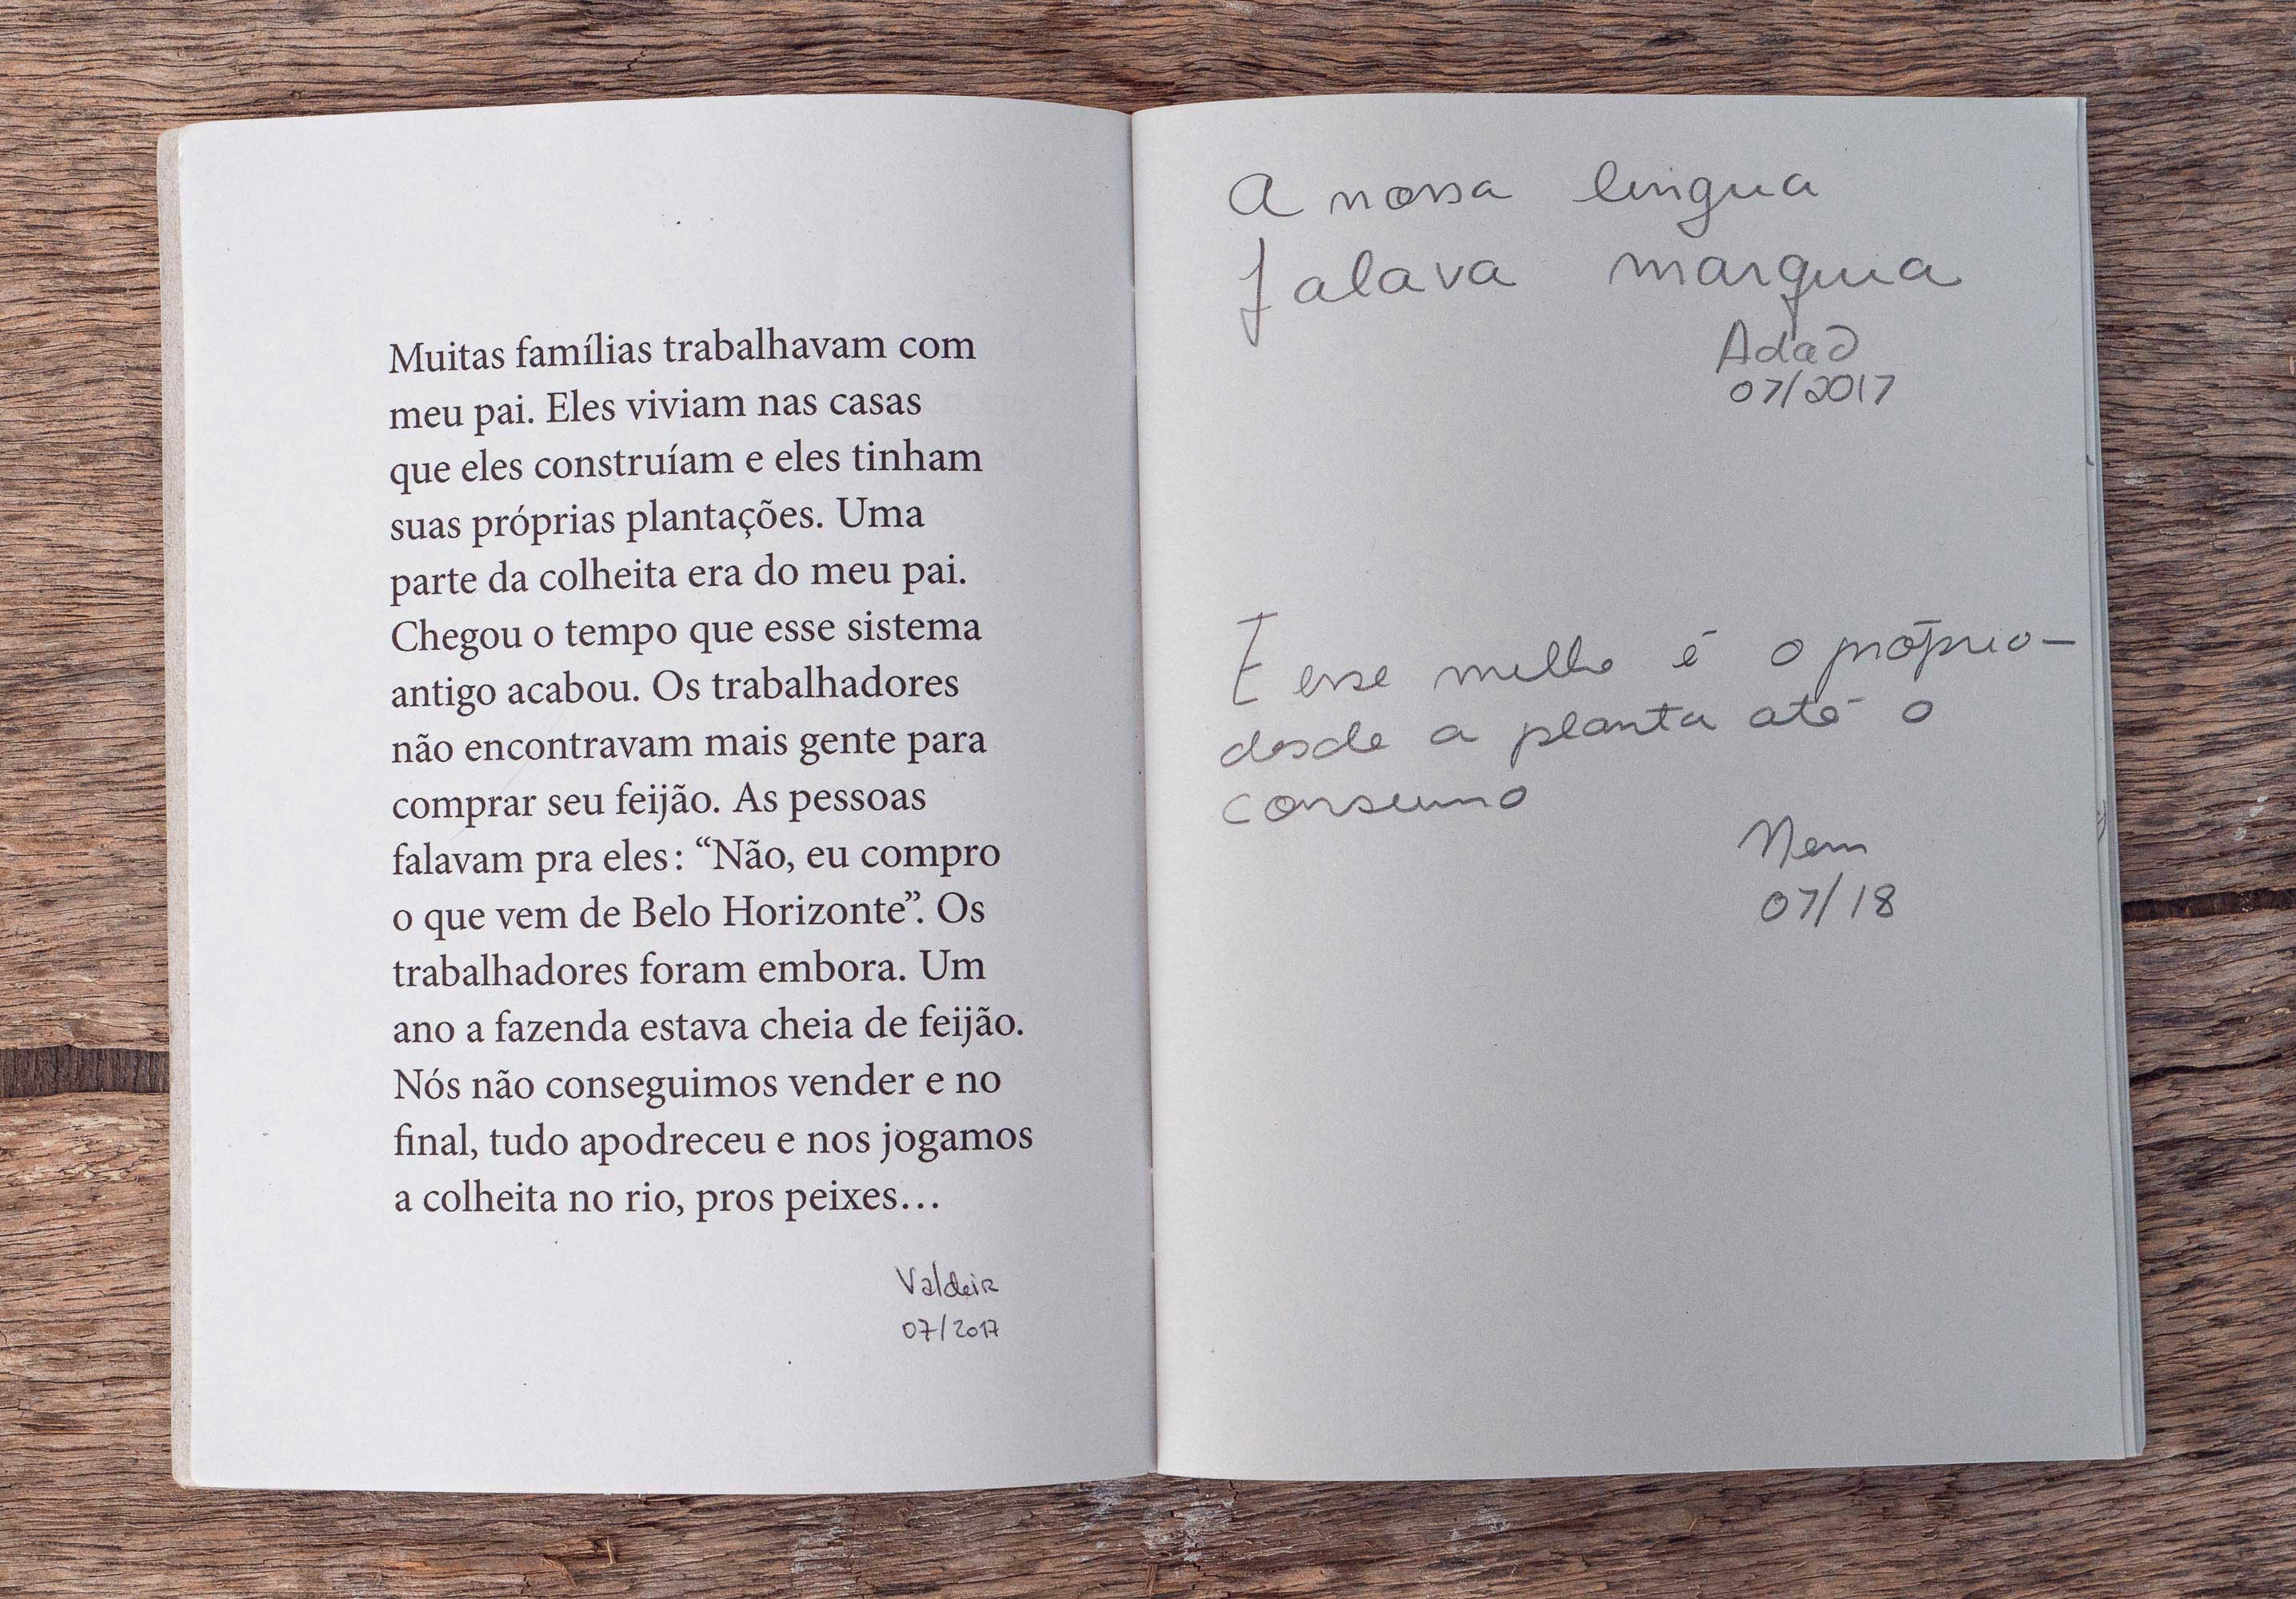 Muitas famílias trabalhavam com
meu pai. Eles viviam nas casas
que eles construíam e eles tinham
suas próprias plantações. Uma
parte da colheita era do meu pai.
Chegou o tempo que esse sistema
antigo acabou. Os trabalhadores
não encontravam mais gente para
comprar seu feijão. As pessoas
falavam pra eles: “Não, eu compro
o que vem de Belo Horizonte”. Os
trabalhadores foram embora. Um
ano a fazenda estava cheia de feijão.
Nós não conseguimos vender e no
final, tudo apodreceu e nos jogamos
a colheita no rio, pros peixes...
Valdeir
07/2017
A nossa lingua
falava marquia
07/2017
E esse milho é o próprio-
desde a planta até o
consumo
Nem
07/18